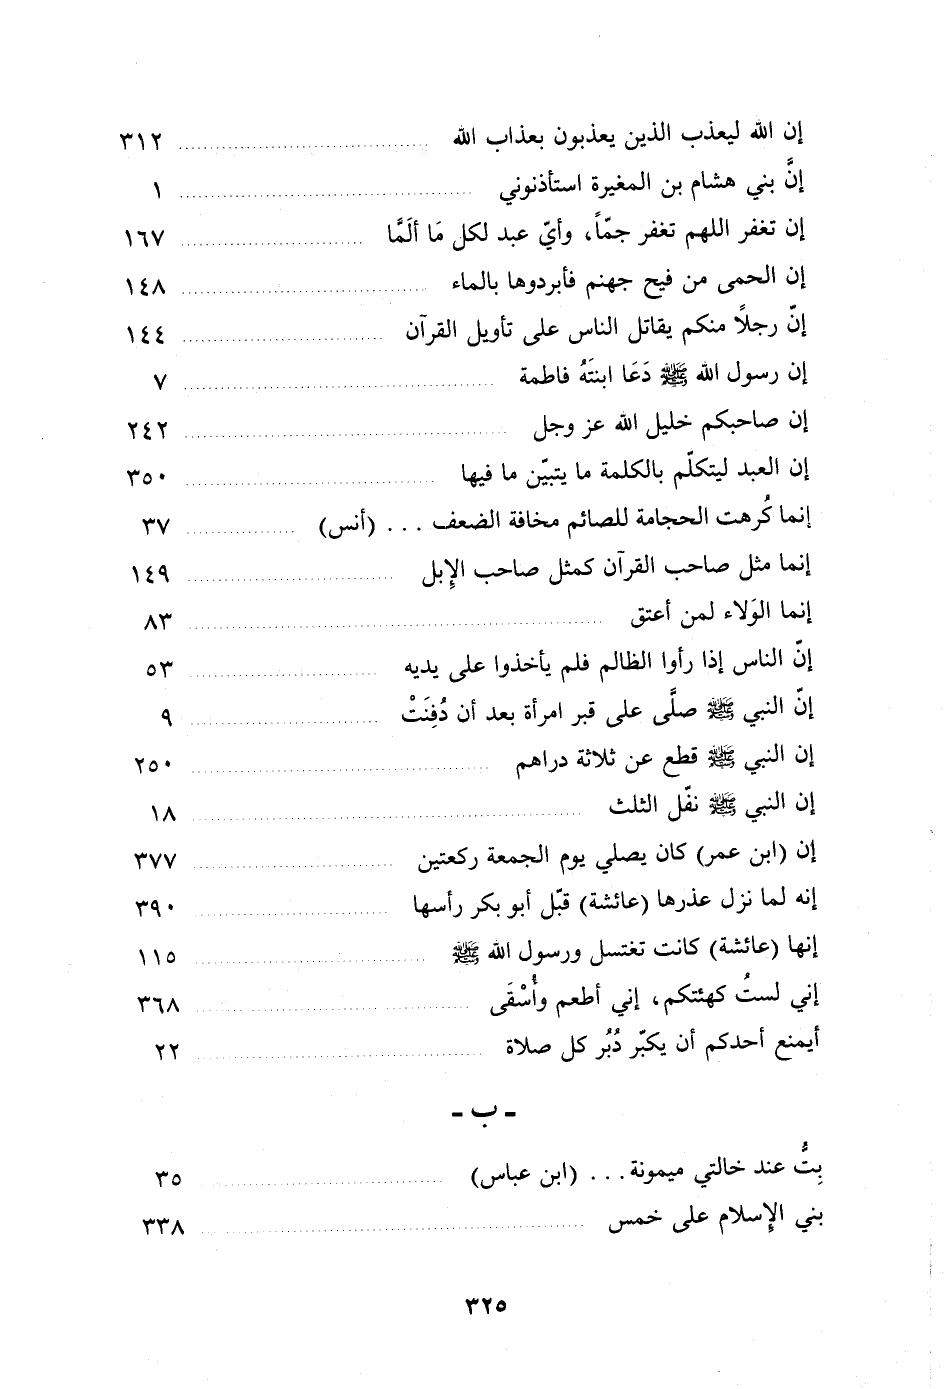 إن الله ليعذب الذين يعذبون بعذاب الله ........ ٣١٢
إنَّ بني هشام بن المغيرة استأذنوني ........ ١
إن تغفر اللهم تغفر جمّاً، وأيّ عبد لكل مَا ألَمَّا ........ ١٦٧
إن الحمى من فيح جهنم فأبردوها بالماء ........ ١٤٨
إنّ رجلاً منكم يقاتل الناس على تأويل القرآن ........ ١٤٤
إن رسول الله ﷺ دَعَا ابنتَهُ فاطمة ........ ٧
إن صاحبكم خليل الله عز وجل ........ ٢٤٢
إن العبد ليتكلّم بالكلمة ما يتبيّن ما فيها ........ ٣٥٠
إنما كُرهت الحجامة للصائم مخافة الضعف ... (أنس) ........ ٣٧
إنما مثل صاحب القرآن كمثل صاحب الإبل ........ ١٤٩
إنما الوَلاء لمن أعتق ........ ٨٣
إنّ الناس إذا رأوا الظالم فلم يأخذوا على يديه ........ ٥٣
إنّ النبي ﷺ صلَّى على قبر امرأة بعد أن دُفِنَتْ ........ ٩
إن النبي ﷺ قطع عن ثلاثة دراهم ........ ٢٥٠
إن النبي ﷺ نفّل الثلث ........ ١٨
إن (ابن عمر) كان يصلي يوم الجمعة ركعتين ........ ٣٧٧
إنه لما نزل عذرها (عائشة) قبّل أبو بكر رأسها ........ ٣٩٠
إنها (عائشة) كانت تغتسل ورسول الله ﷺ ........ ١١٥
إني لستُ كهئتكم، إني أطعم وأُسْقَى ........ ٣٦٨
أيمنع أحدكم أن يكبّر دُبُر كل صلاة ........ ٢٢
- ب -
بِتُّ عند خالتي ميمونة... (ابن عباس) ........ ٣٥
بني الإسلام على خمس ........ ٣٣٨
٣٢٥